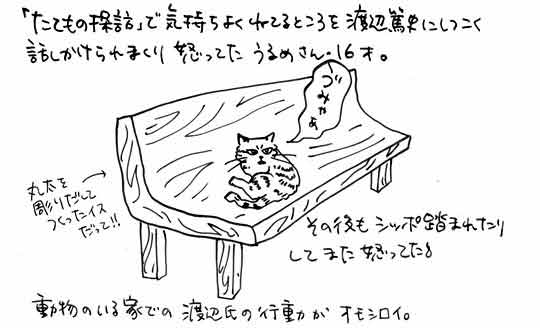 「たてもの探訪」で気持ちよくねてるところを渡辺篤史にしつこく
話しかけられまくり怒ってたうるめさん・16才。
ヴみゃぁ
丸太を
彫りだして
つくったイス
だって!!
その後もシッポ踏まれたり
してまた怒ってた
動物のいる家での渡辺氏の行動がオモシロイ。